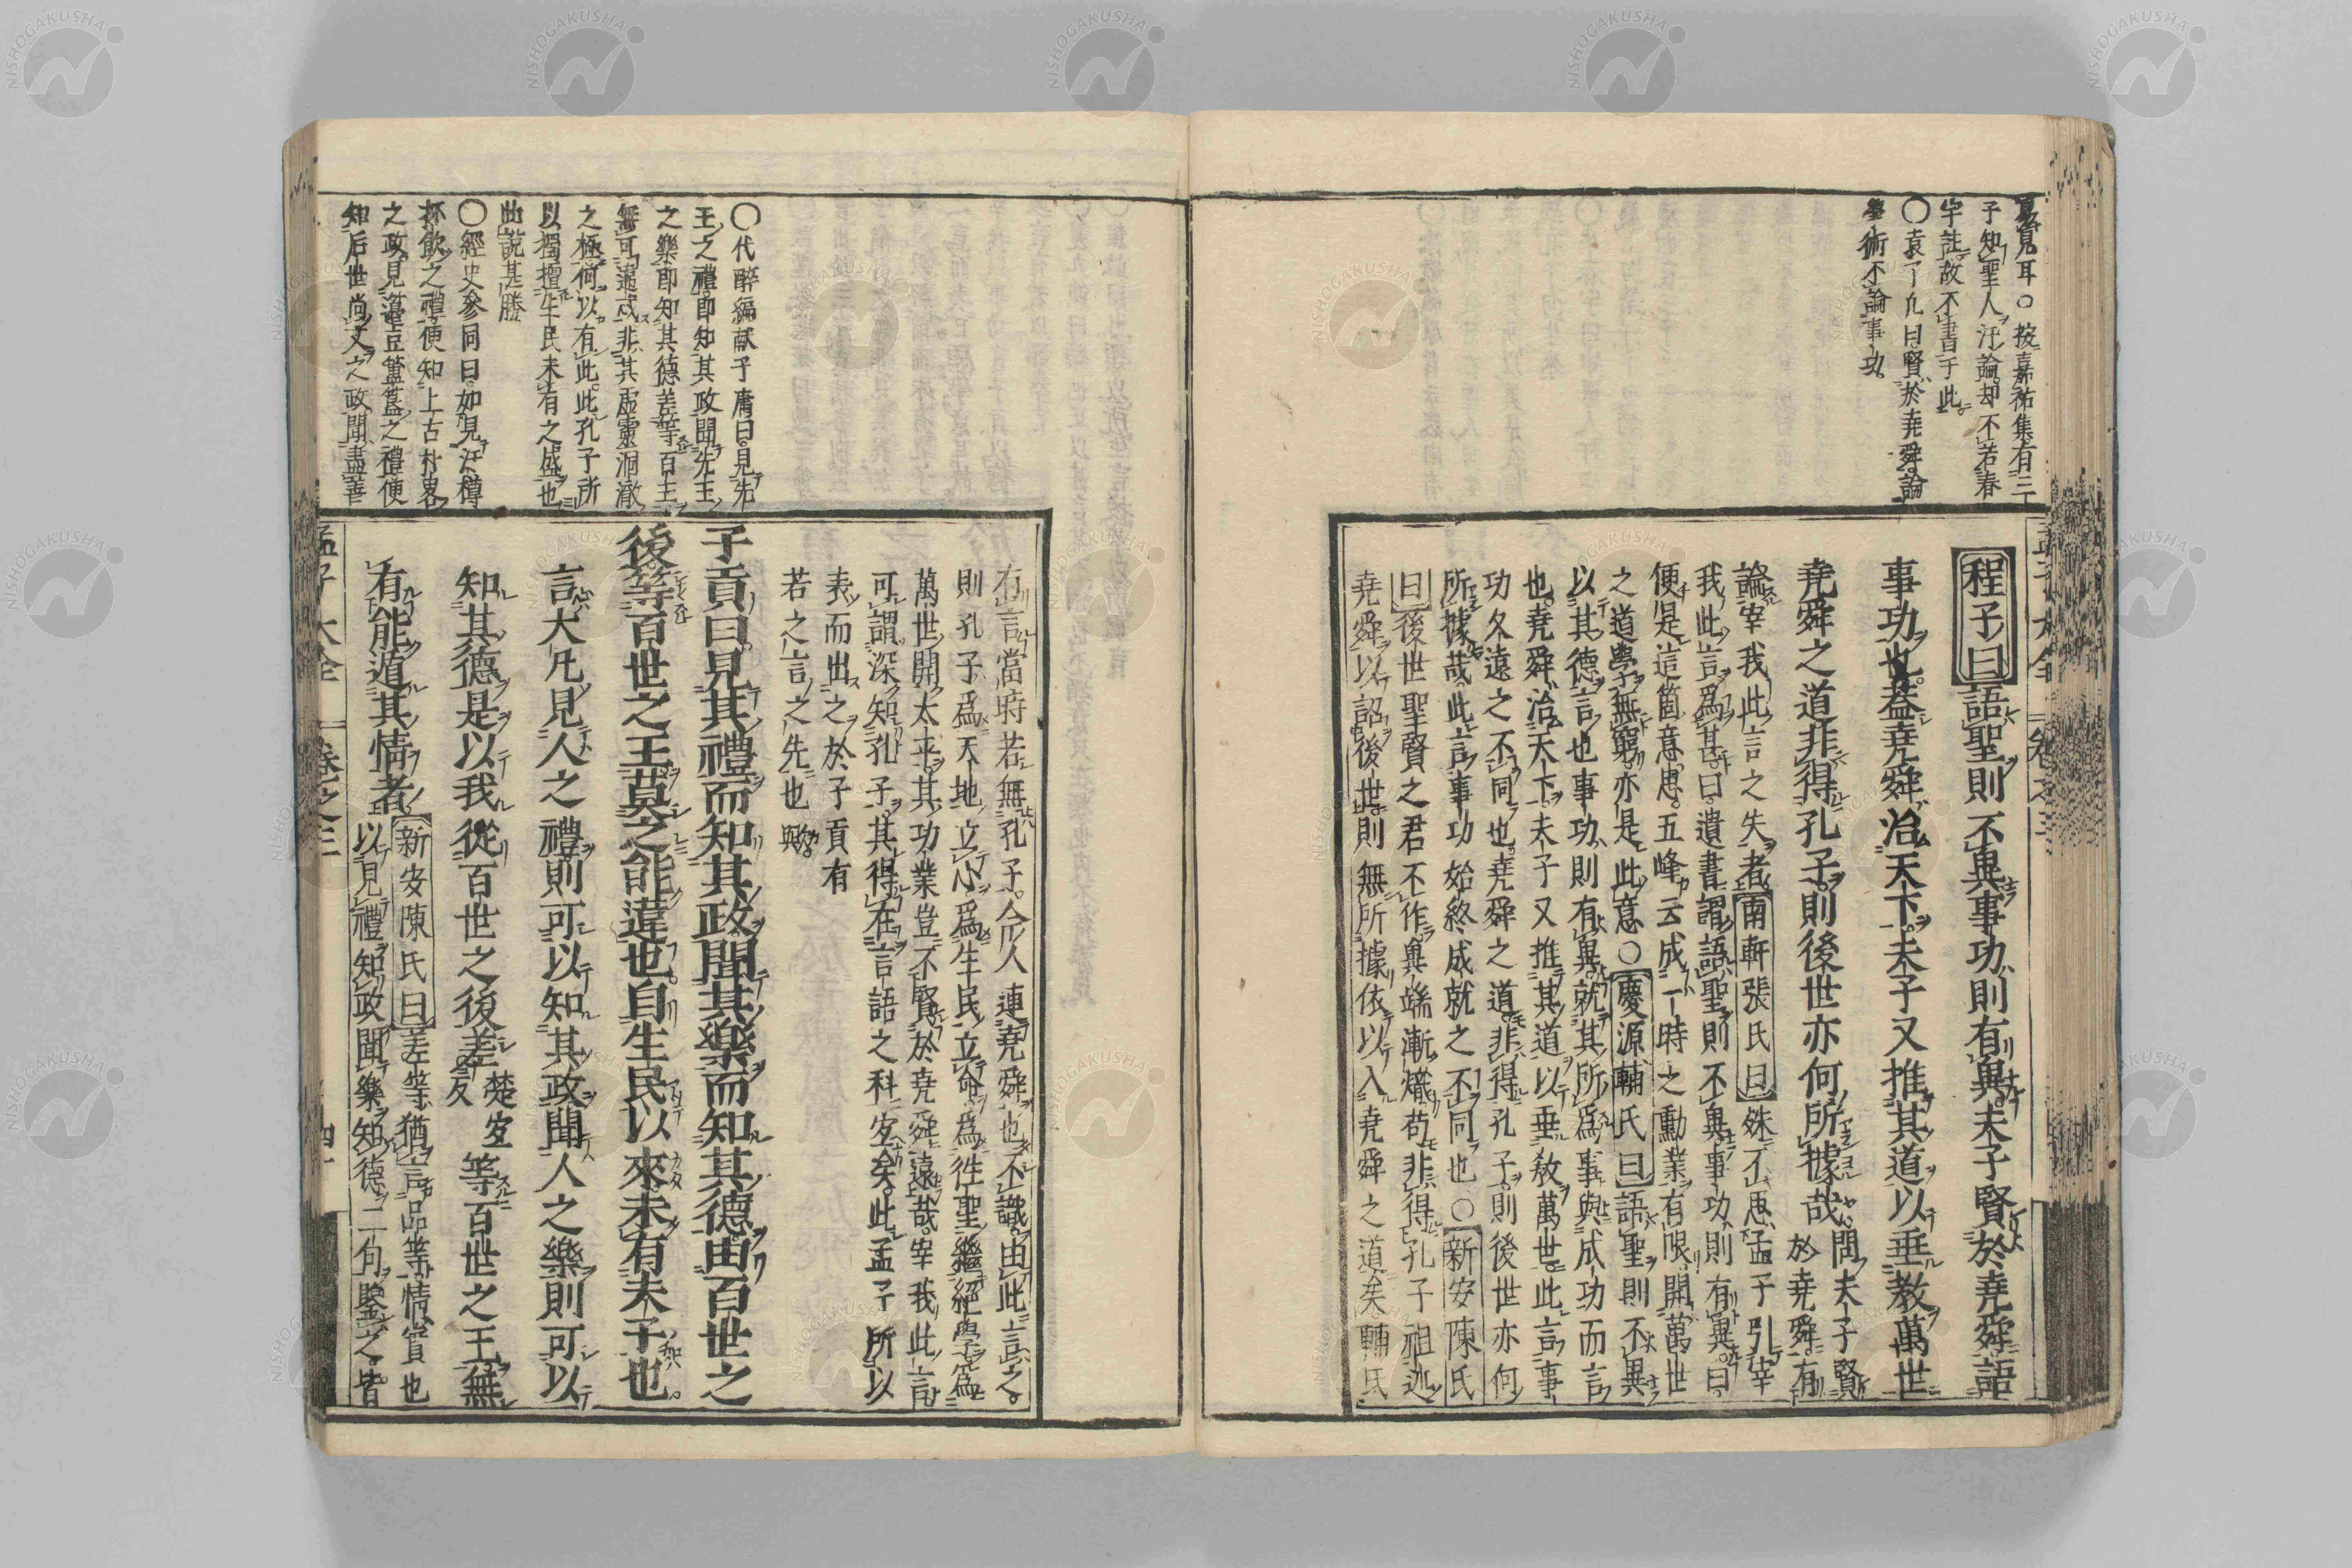 夏見耳○按嘉祐集有三
子知聖人汙論却不若春
字註故不書于此
○袁了凡曰賢於堯舜論
學術不論事功
程子曰語聖則不異事功則有異夫子賢於堯舜語
事功也蓋堯舜治天下夫子又推其道以垂教萬世
堯舜之道非得孔子則後世亦何所據哉問夫子賢
於堯舜有
論宰我此言之失者南軒張氏曰姝不思孟子引宰
我此豈爲甚曰遺書謂語聖則不異事功則有異曰
便是這箇意思五峰云成一時之勳業有限開萬世
之道學無窮亦是此意○慶源輔氏曰語聖則不異
以其德言也事功則有異就其所爲事與成功而言
也堯舜治天下夫子又推其道以垂教萬世此言事
功久遠之不同也堯舜之道非得孔子則後世亦何
所據哉此言事功始終成就之不同也○新安陳氏
曰後世聖賢之君不作異端漸熾苟非得孔子祖述
堯舜以詔後世則無所據依以入堯舜之道矣輔氏
孟子大全 卷之三
○代醉編献子庸曰見先
王之禮即知其政聞先王
之樂即知其德差等百王
無可遁或非其虛靈洞澈
之極何以有此此孔子所
以獨擅生民未有之盛也
此說甚勝
○經史參同曰如見汙樽
杯飲之禮便知上古朴畧
之政見籩豆簠簋之禮便
知后世尚文之政聞盡善
有言當時若無孔子今人連堯舜也不識由此言之
則孔子爲天地立心爲生民立命爲徃聖繼絕學爲
萬世開太平其功業豈不賢於堯舜遠哉宰我此言
可謂深知孔子其得在言語之科宜矣此孟子所以
表而出之於子貢有
若之言之先也歟
子貢曰見其禮而知其政聞其樂而知其德由百世之
後等百世之王莫之能違也自生民以來未有夫子也
言大凡見人之禮則可以知其政聞人之樂則可以
知其德是以我從百世之後差楚宜
反等百世之王無
有能遁其情者新安陳氏曰差等猶言品等情實也
以見禮知政聞樂知德二句鑒之皆
孟子大全 卷之三 四十